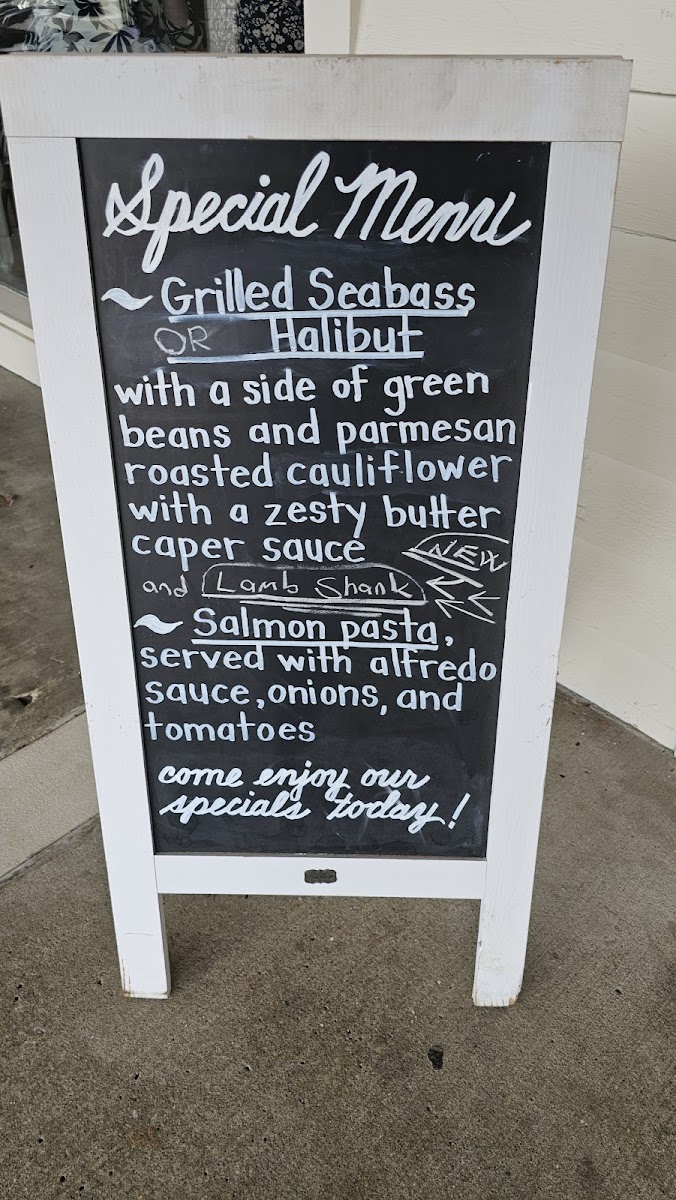 Special Menu
~ Grilled Seabass
OR Halibut
with a side of green
beans and parmesan
roasted cauliflower
with a zesty butter
caper sauce NEW
and Lamb Shank
~ Salmon pasta,
served with alfredo
sauce, onions, and
tomatoes
come enjoy our
specials today!